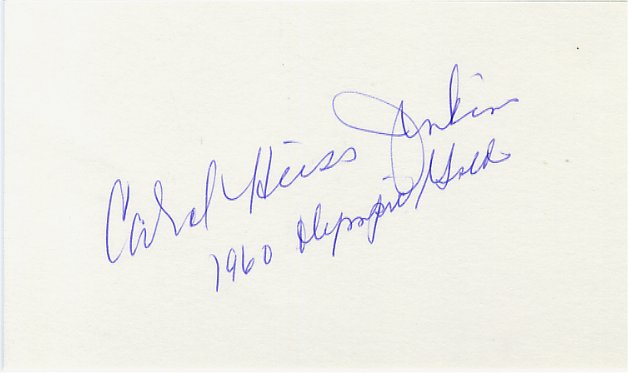 Carol Heiss Jenkins
1960 Olympic Gold